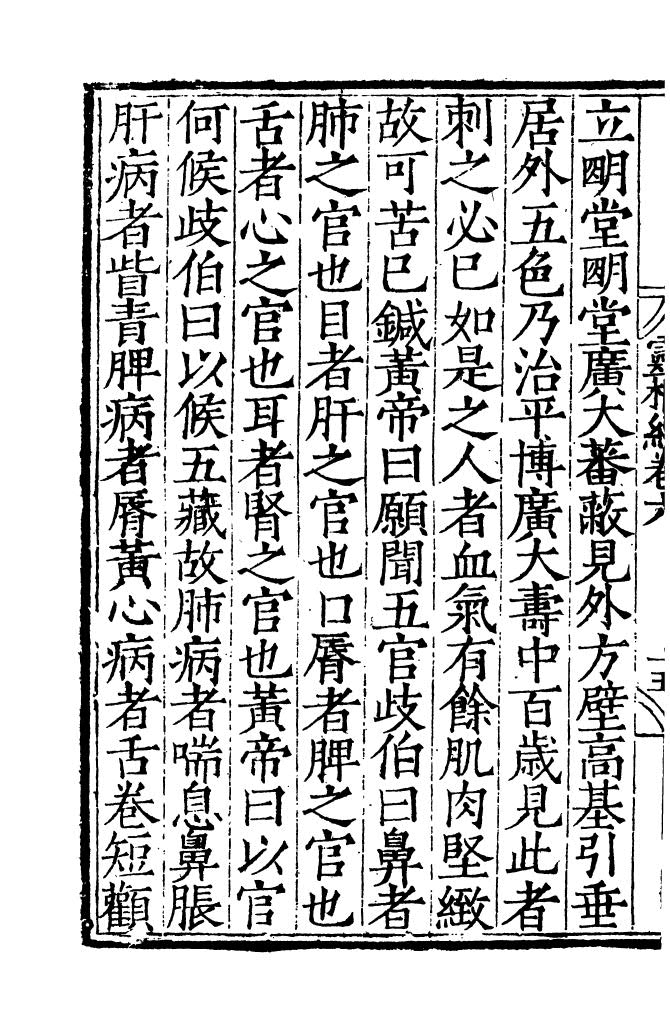 立明堂明堂廣大蕃蔽見外方壁高基引垂
居外五色乃治平博廣大壽中百歲見此者
刺之必已如是之人者血氣有餘肌肉堅緻
故可苦已鍼黃帝曰願聞五官歧伯曰鼻者
肺之官也目者肝之官也口脣者脾之官也
舌者心之官也耳者腎之官也黃帝曰以官
何候歧伯曰以候五藏故肺病者喘息鼻脹
肝病者眥青脾病者脣黃心病者舌卷短顴